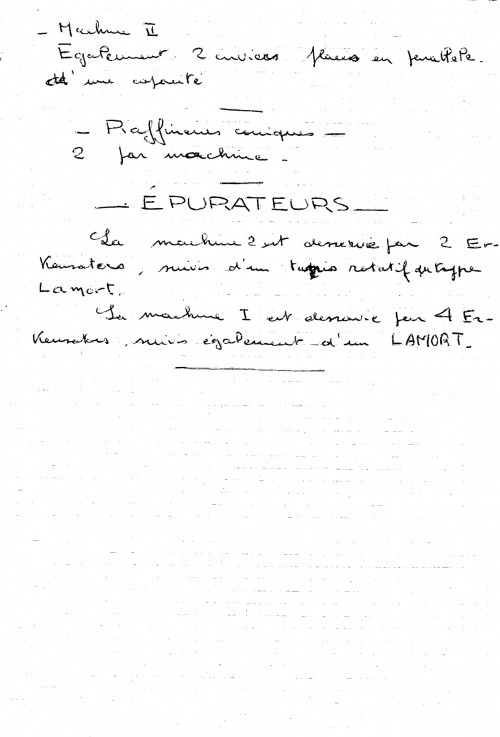 - Machine II
Egalement 2 cuviers placés en parallèle.
d'une capacité
- Raffineries coniques -
2 par machine -
- ÉPURATEURS -
La machine 2 est desservie par 2 Er-
Kensators, suivis d'un tapis rotatif du type
Lamort.
La machine I est desservie par 4 Er-
Kensators, suivis également d'un LAMORT.